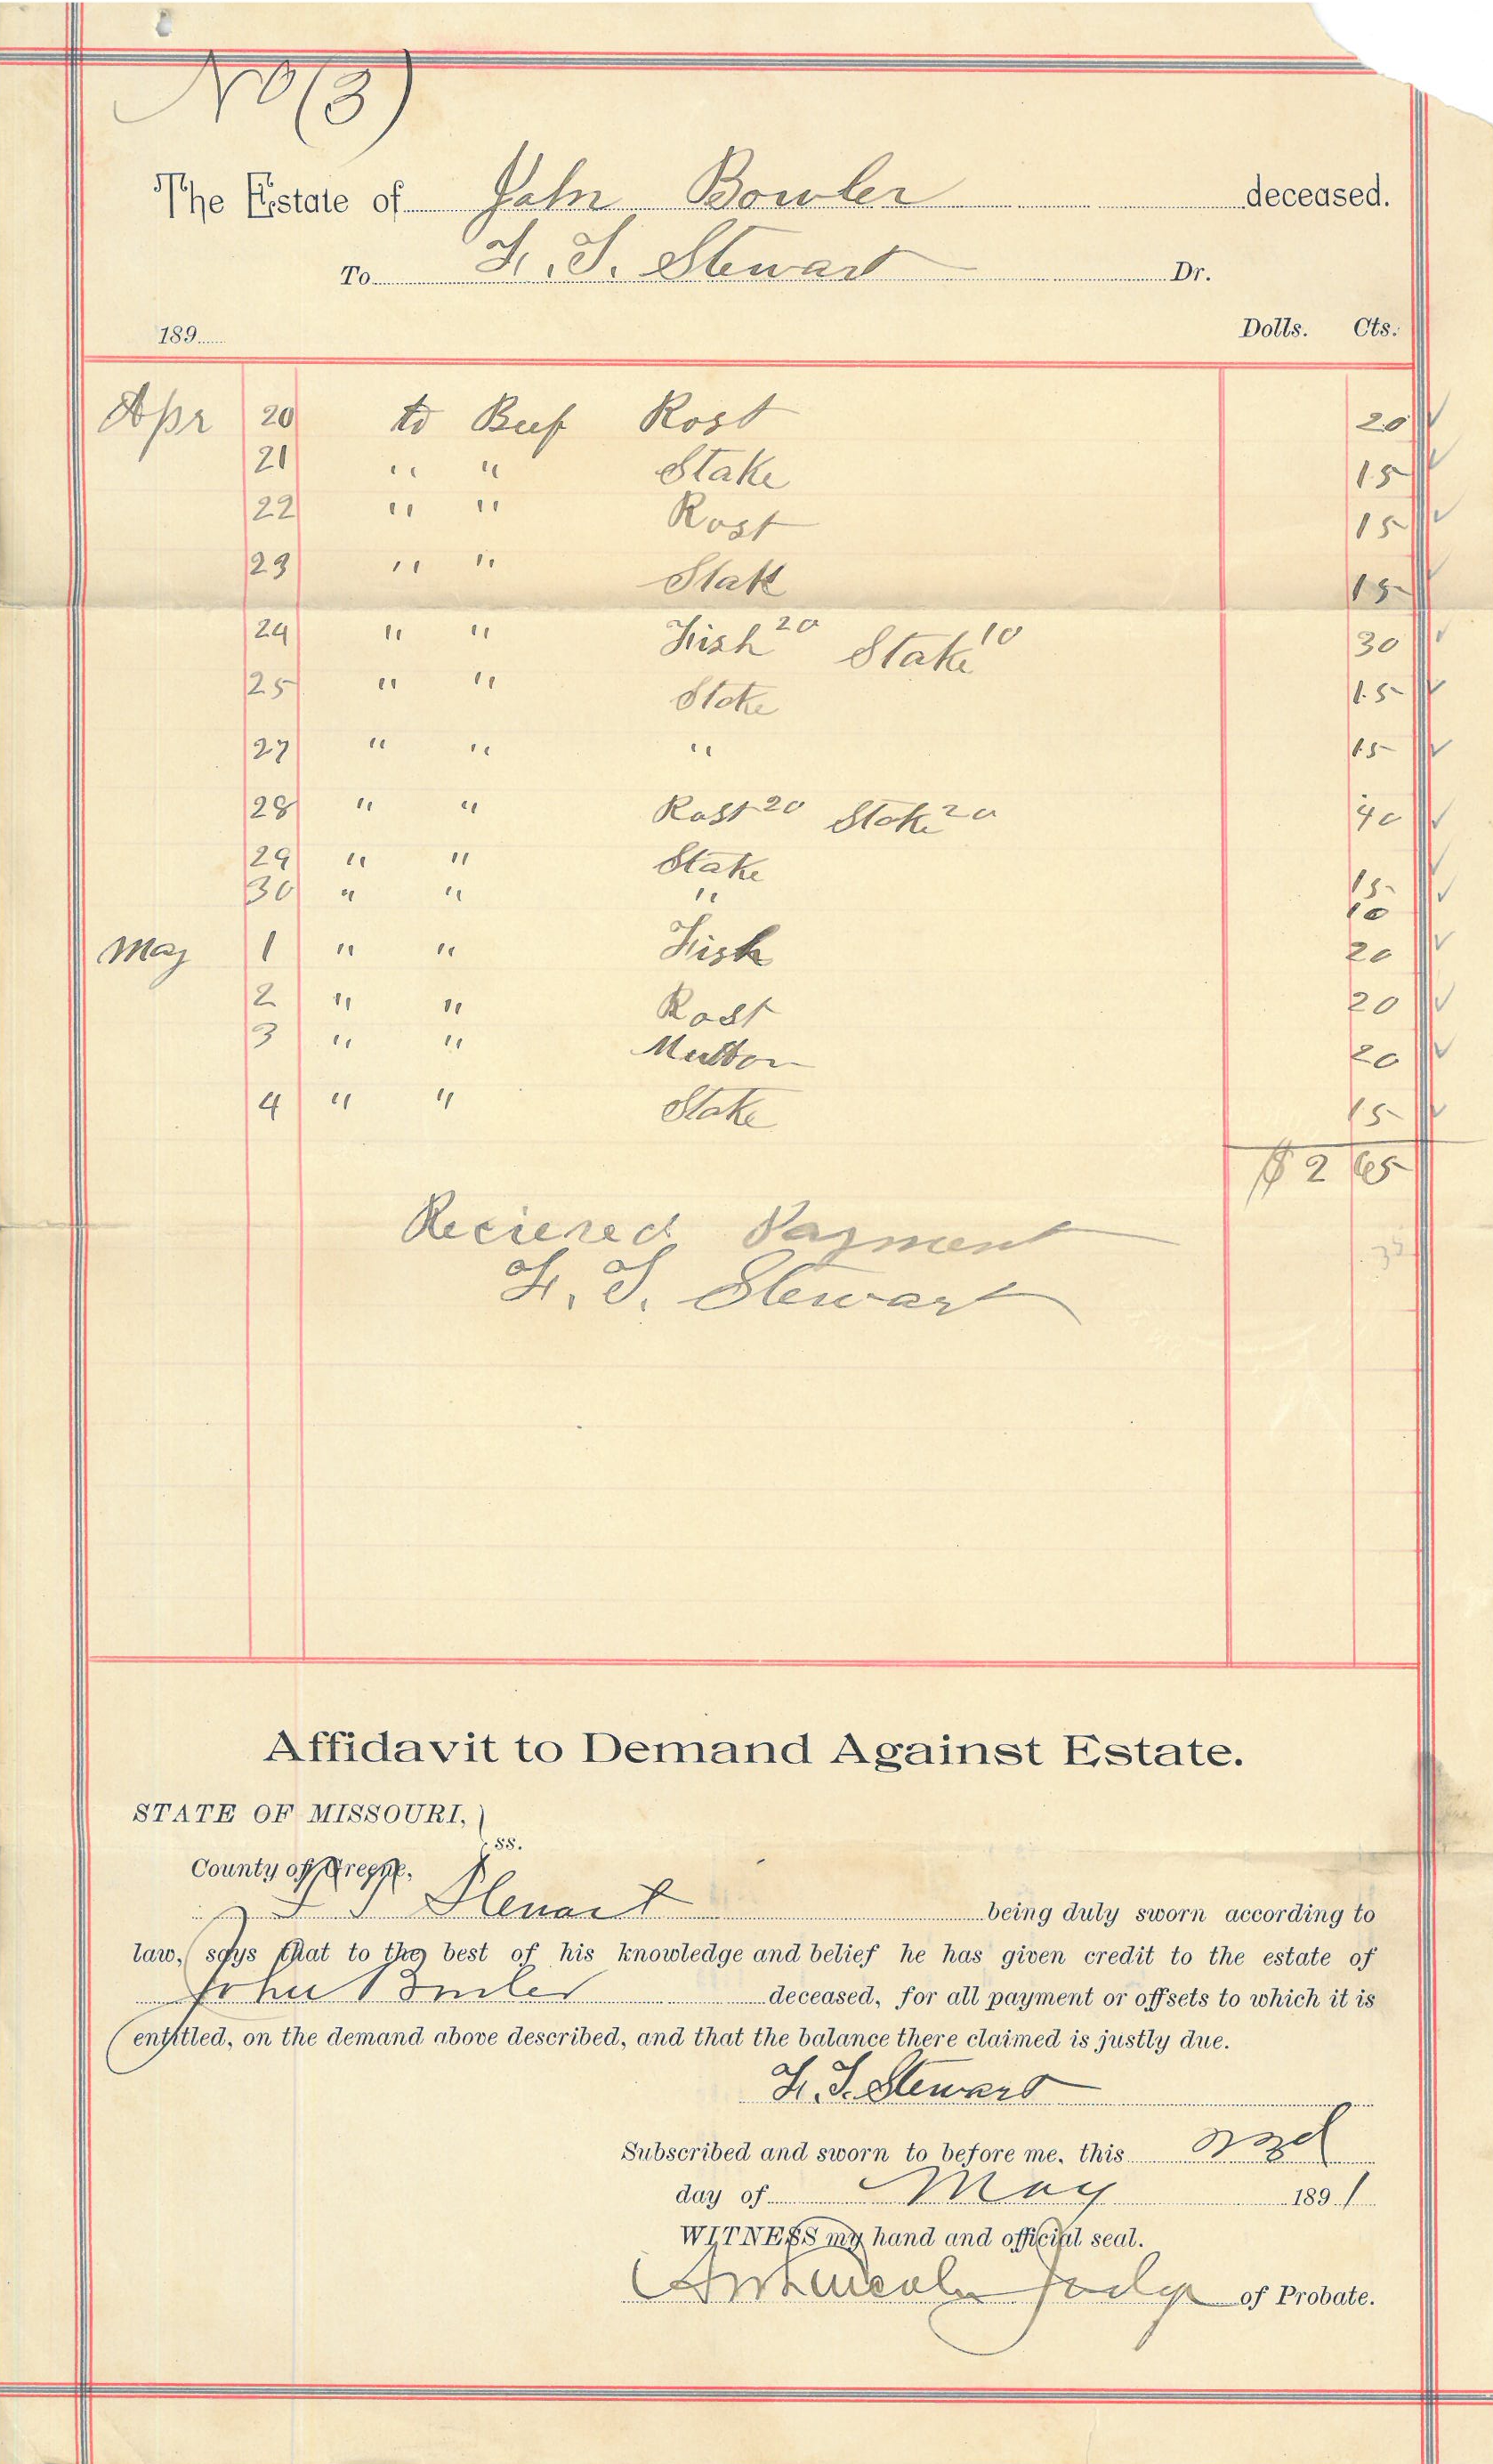 No (3)
The Estate of John Bowler deceased.
To F. T. Stewart Dr.
189 Dolls. Cts.
Apr 20 to Beef Rost 20
21 " " Stake 15
22 " " Rost 15
23 " " Stake 15
24 " " Fish 20 Stake 10 30
25 " " Stake 15
27 " " " 15
28 " " Rost 20 Stake 20 40
29 " " Stake 15
30 " " " 10
May 1 " " Fish 20
2 " " Rost 20
3 " " Mutton 20
4 " " Stake 15
$ 2 65
Recieved Payment
F. T. Stewart
Affidavit to Demand Against Estate.
STATE OF MISSOURI,
ss.
County of Greene,
F T Stewart being duly sworn according to
law, says that to the best of his knowledge and belief he has given credit to the estate of
John Bowler deceased, for all payment or offsets to which it is
entitled, on the demand above described, and that the balance there claimed is justly due.
F. T. Stewart
Subscribed and sworn to before me, this 22d
day of May 1891
WITNESS my hand and official seal.
Judge of Probate.